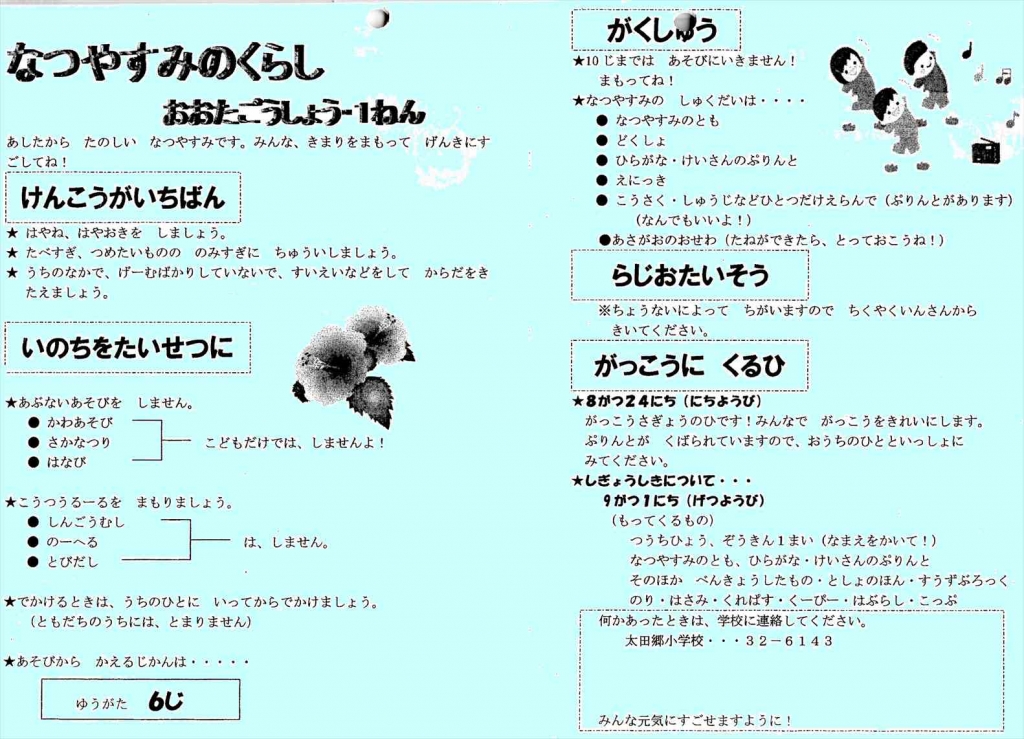 なつやすみのくらし
おおたごうしょう-1ねん
あしたから　たのしい　なつやすみです。みんな、きまりをまもって　げんきにす
ごしてね！
けんこうがいちばん
★ はやね、はやおきを　しましょう。
★ たべすぎ、つめたいものの　のみすぎに　ちゅういしましょう。
★ うちのなかで、げーむばかりしていないで、すいえいなどをして　からだをき
たえましょう。
いのちをたいせつに
★あぶないあそびを　しません。
● かわあそび
● さかなつり　こどもだけでは、しませんよ！
● はなび
★こうつうるーるを　まもりましょう。
● しんごうむし
● のーへる　は、しません。
● とびだし
★でかけるときは、うちのひとに　いってからでかけましょう。
（ともだちのうちには、とまりません）
★あそびから　かえるじかんは・・・・・
ゆうがた　6じ
がくしゅう
★10じまでは　あそびにいきません！
まもってね！
★なつやすみの　しゅくだいは・・・・
● なつやすみのとも
● どくしょ
● ひらがな・けいさんのぷりんと
● えにっき
● こうさく・しゅうじなどひとつだけえらんで（ぷりんとがあります）
（なんでもいいよ！）
●あさがおのおせわ（たねができたら、とっておこうね！）
らじおたいそう
※ちょうないによって　ちがいますので　ちくやくいんさんから
きいてください。
がっこうに　くるひ
★8がつ24にち（にちようび）
がっこうさぎょうのひです！みんなで　がっこうをきれいにします。
ぷりんとが　くばられていますので、おうちのひとといっしょに
みてください。
★しぎょうしきについて・・・
9がつ1にち（げつようび）
（もってくるもの）
つうちひょう、ぞうきん１まい（なまえをかいて！）
なつやすみのとも、ひらがな・けいさんのぷりんと
そのほか　べんきょうしたもの・としょのほん・すうずぶろっく
のり・はさみ・くれぱす・くーぴー・はぶらし・こっぷ
何かあったときは、学校に連絡してください。
太田郷小学校・・・３２－６１４３
みんな元気にすごせますように！